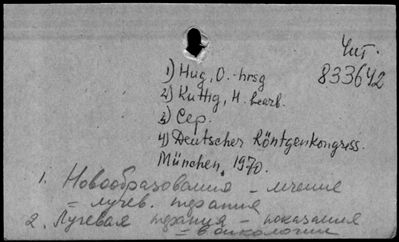 Чит.
833642
1) Hug, O. - hrsg
2) Kuttig, H. bearb.
3) Сер.
4) Deutscher Röntgenkongress.
München, 1970.
1. Новообразования - лечение
- лучев. терапия
2. Лучевая терапия - показания
- в онкологии